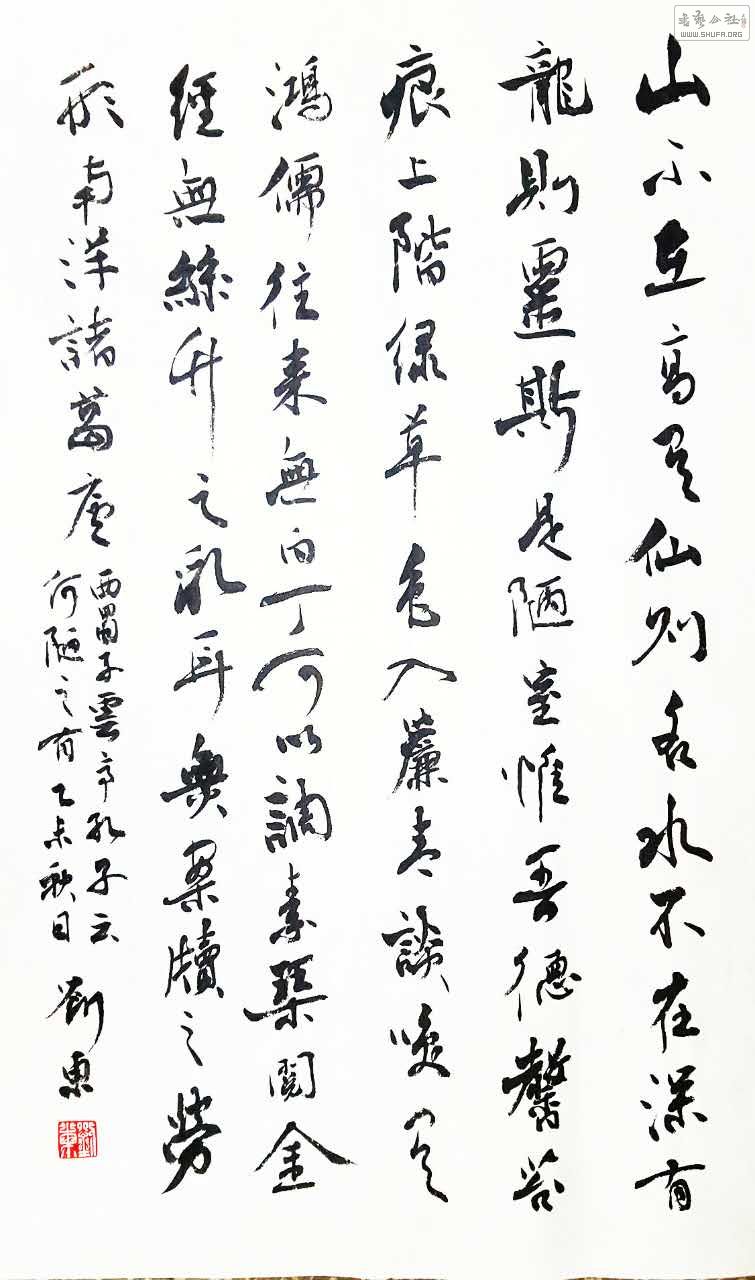 書藝公社
WWW.SHUFA.ORG
山不在高有仙则名水不在深有
龍則靈斯是陋室惟吾德馨苔
痕上階绿草色入簾青談咲有
鴻儒往来無白丁可以調素琴閲金
經無絲竹之乱耳無案牘之勞
形南洋諸葛庐
西蜀子雲亭孔子云
何陋之有乙未秋日
劉東